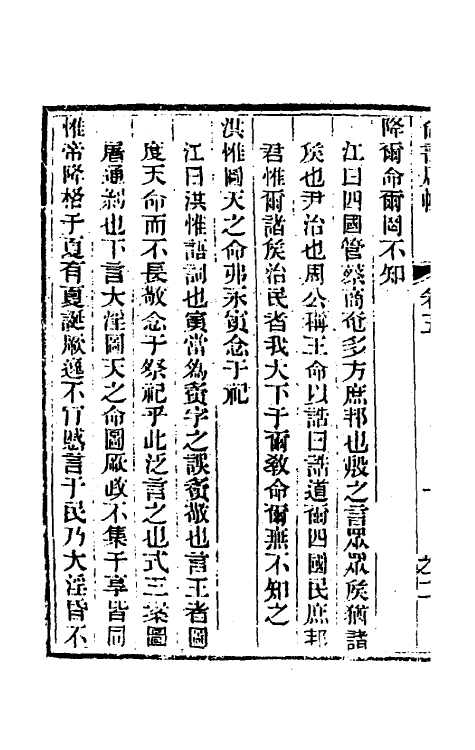 降爾命爾罔不知
江曰四國管蔡商奄多方庶邦也殷之言眾眾矦猶諸
矦也尹治也周公稱王命以誥曰誥道爾四國民庶邦
君惟爾諸矦治民者我大下于爾敎命爾無不知之
洪惟圖天之命弗永寅念于祀
江曰洪惟語詞也寅當爲夤字之誤夤敬也言王者圖
度天命而不長敬念于祭祀乎此泛言之也式三案圖
屠通剫也下言大淫圖天之命圖厥政不集于享皆同
惟帝降格于夏有夏誕厥逸不肎慼言于民乃大淫昏不